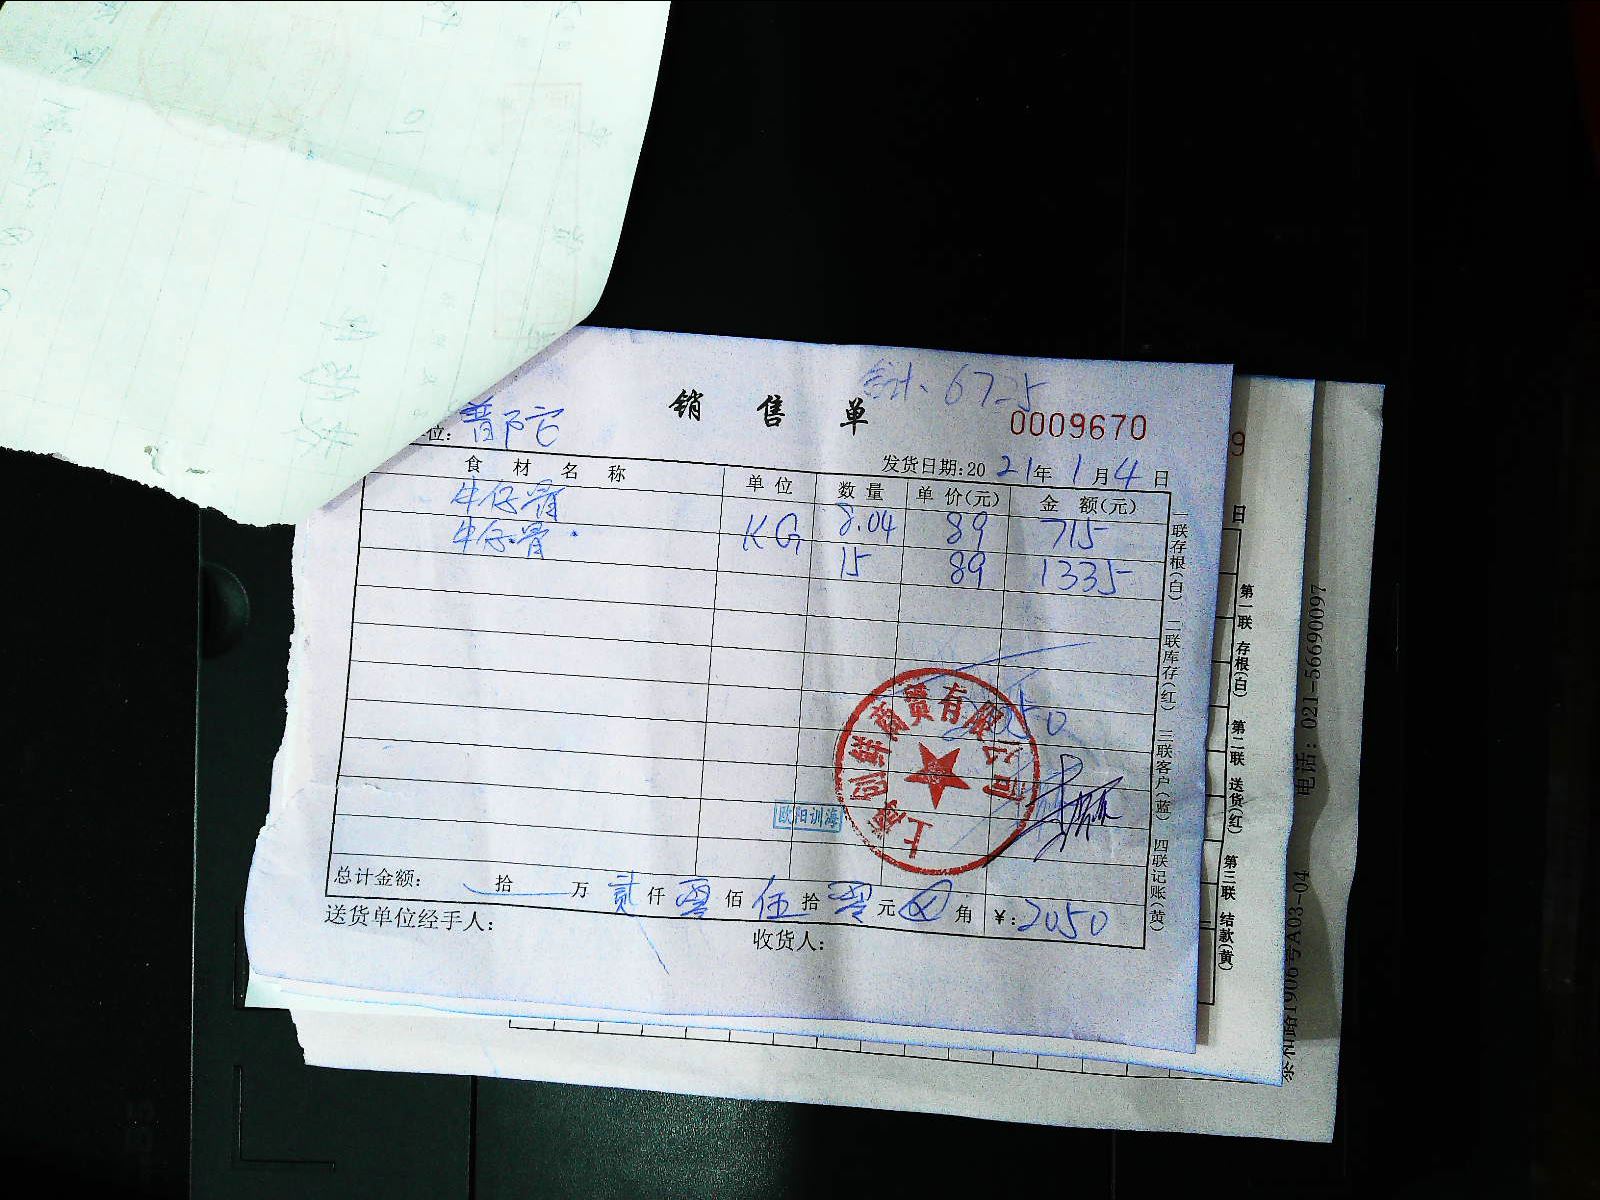 合计: 6725
销售单
0009670
位: 普陀
发货日期:2021年1月4日
食材名称 单位 数量 单价(元) 金额(元)
牛仔骨 KG 8.04 89 715
牛仔骨 15 89 1335
2050
上海 鲜商贸有限公司
欧阳训海
总计金额: 拾 万 贰仟零佰伍拾零元 角 ¥:2050
送货单位经手人:
收货人:
一联存根(白) 二联库存(红) 三联客户(蓝) 四联记账(黄)
9
日
第一联 存根(白) 第二联 送货(红) 第三联 结款(黄)
路1900号A03-04 电话:021-56690097